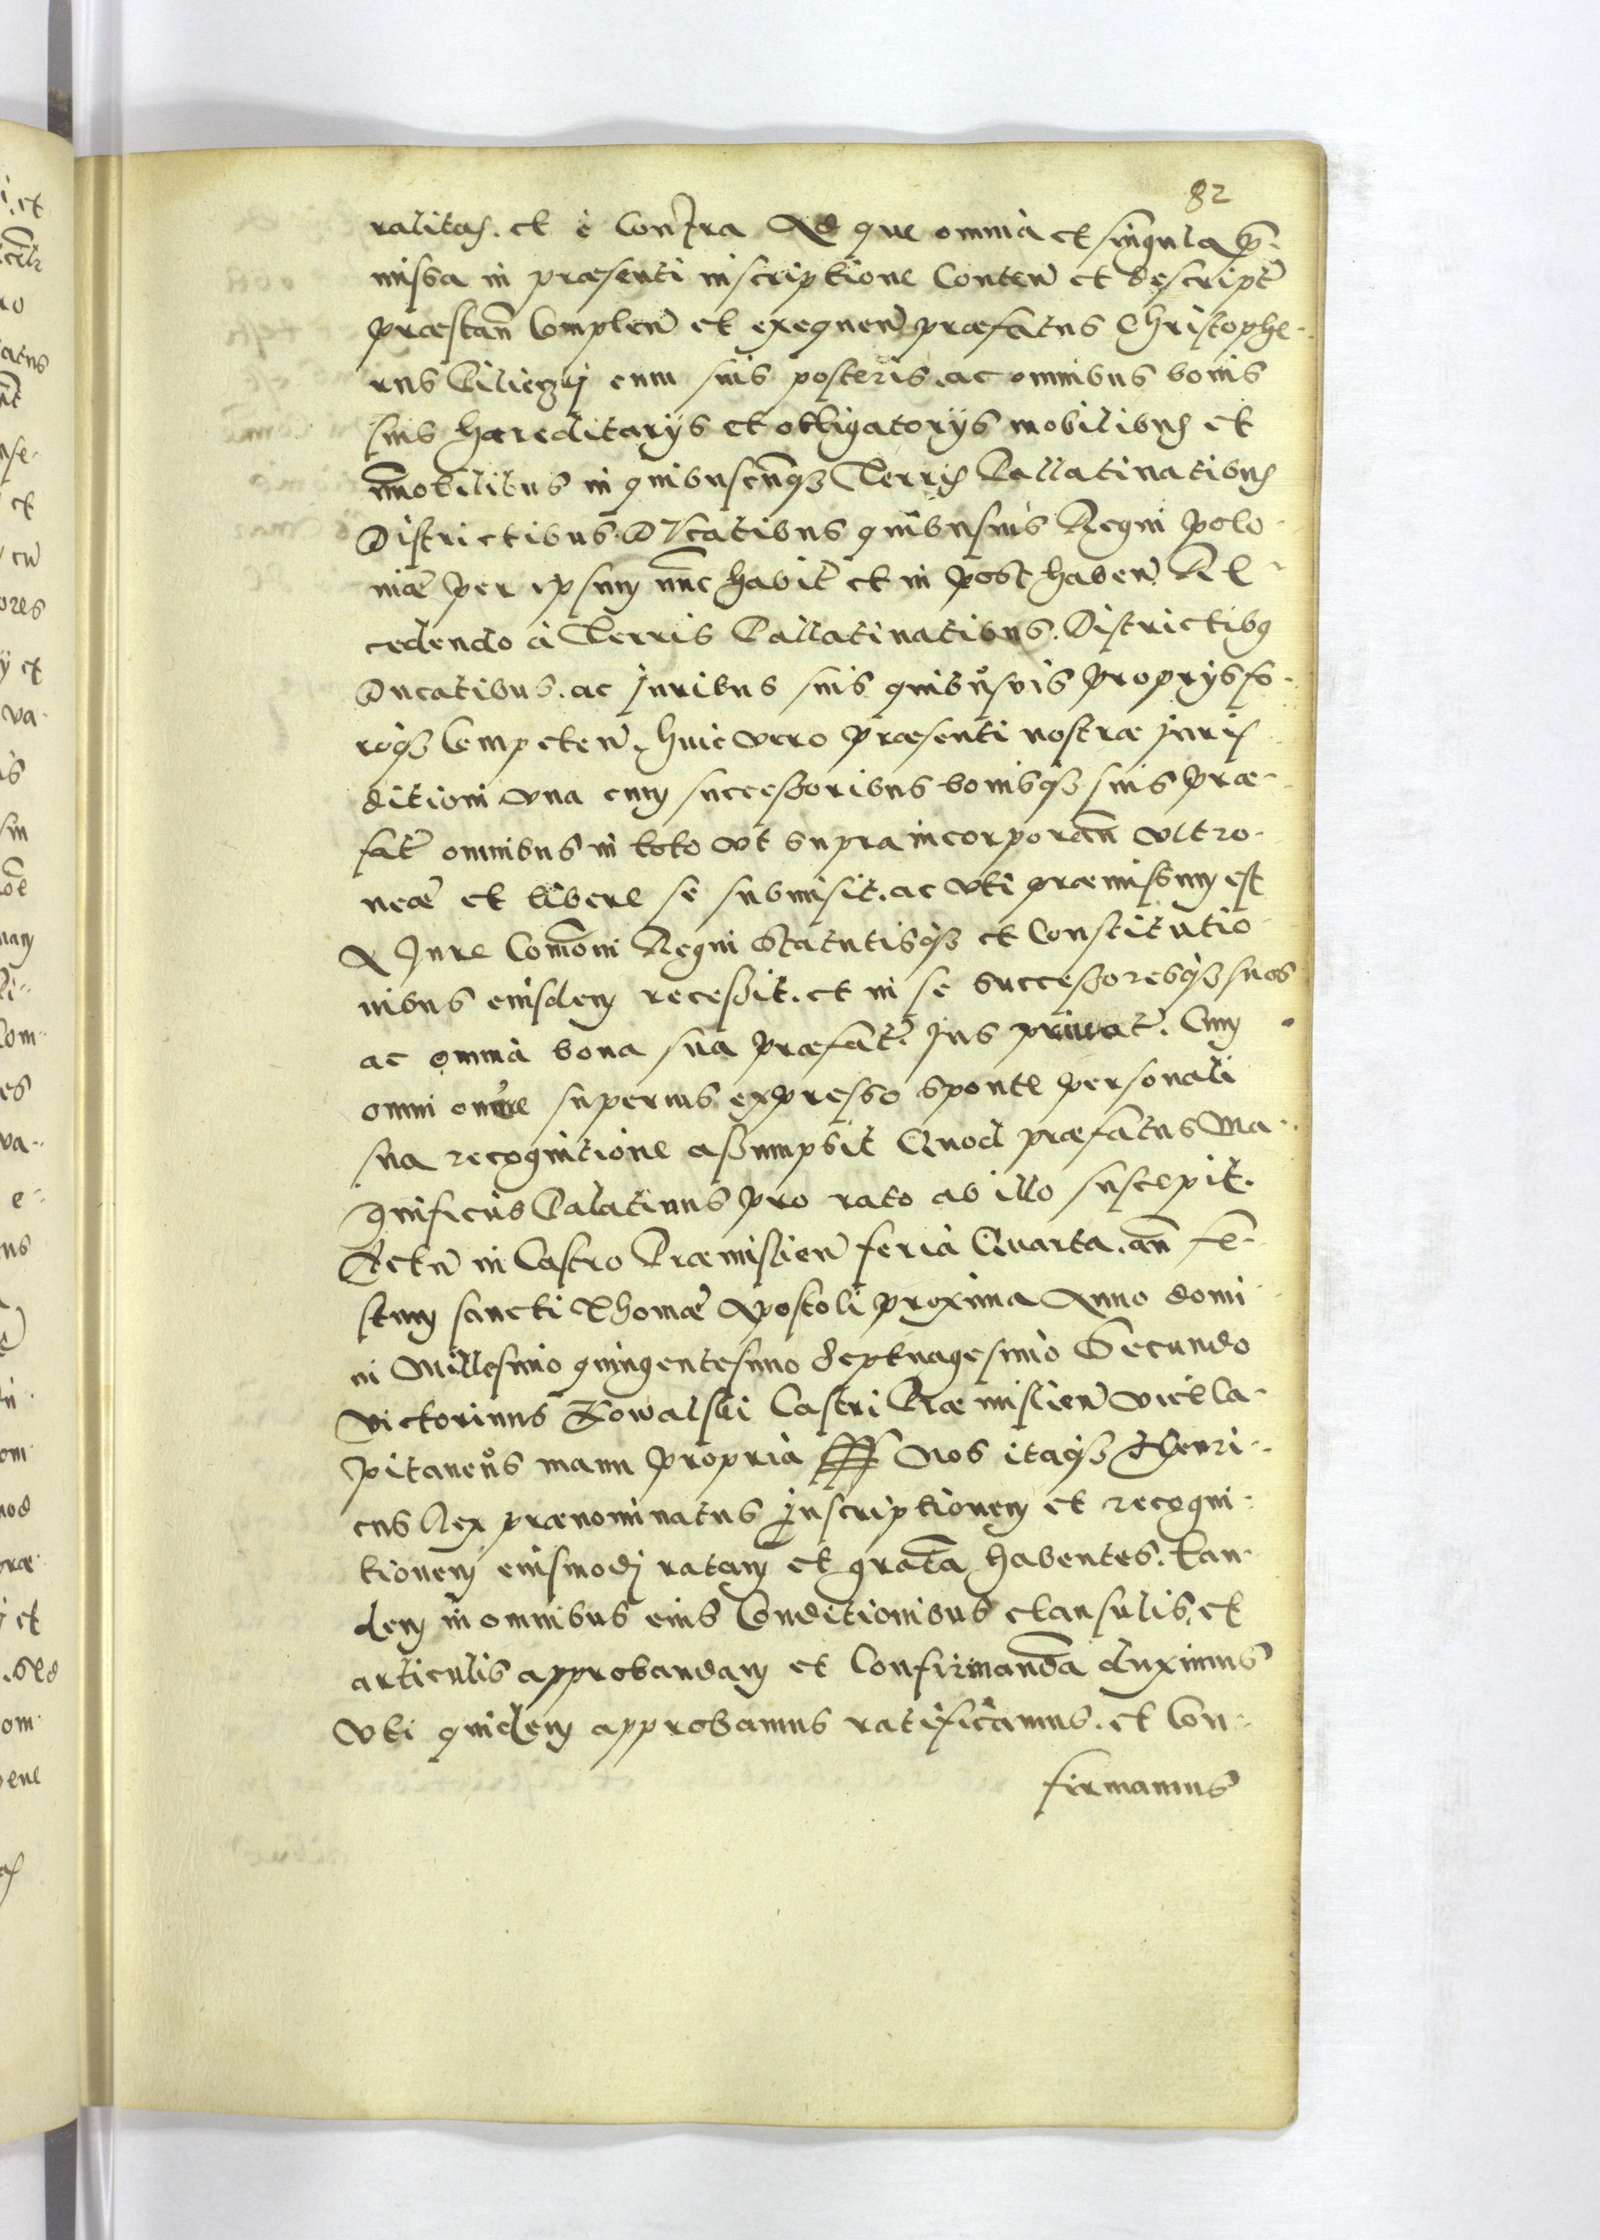 82
ralitas. et è Contra Ad que omnia et singula p̃-
missa in præsenti inscriptione Conteñ et descript̃
præstañ Compleñ et exequeñ præfatus Christophe-
rus cum suis posteris. ac omnibus bonis
suis hæreditarijs et obligatorijs mobilibus et
im̃obilibus in quibuscunq3 Terris Pallatinatibus
Districtibus Ducatibus quibusuis Regni Polo-
niæ per ipsum nunc habit̃ et in post habeñ. Re-
cedendo à Terris Pallatinatibus. Districtibus
Ducatibus. ac Juribus suis quibusuis proprijs fo-
roq3 Competeñ. huic vero præsenti nostræ juris
ditioni vna cum successoribus bonisq3 suis præ-
fat̃ omnibus in toto vt supra incorporañ vltro-
neæ et libere se submisit. ac vti præmissum est
A Jure Com̃oni Regni Statutisq3 et Constitutio-
nibus eiusdem recessit. et in se successoresq3 suos
ac omnia bona sua præfat̃. Jus priuat̃. Cum
omni onere superius expresso sponte personali
sua recognitione assumpsit Quod præfatus Ma-
gnificus Palatinus pro rato ab illo suscepit.
Actũ in Castro Præmislieñ feria Quarta. añ fe-
stum sancti Thomæ Apostoli proxima Anno domi-
ni Millesimo quingentesimo Septuagesimo Secundo
Victorinus Kowalski Castri Præmislieñ viceca-
pitaneus manu propria Nos itaq3 Henri-
cus Rex prænominatus Inscriptionem et recogni-
tionem eiusmodj ratam et gratã habentes. Ean-
dem in omnibus eius Conditionibus clausulis, et
articulis approbandam et Confirmandã duximus
Vti quidem approbamus ratificamus. et Con-
firmamus